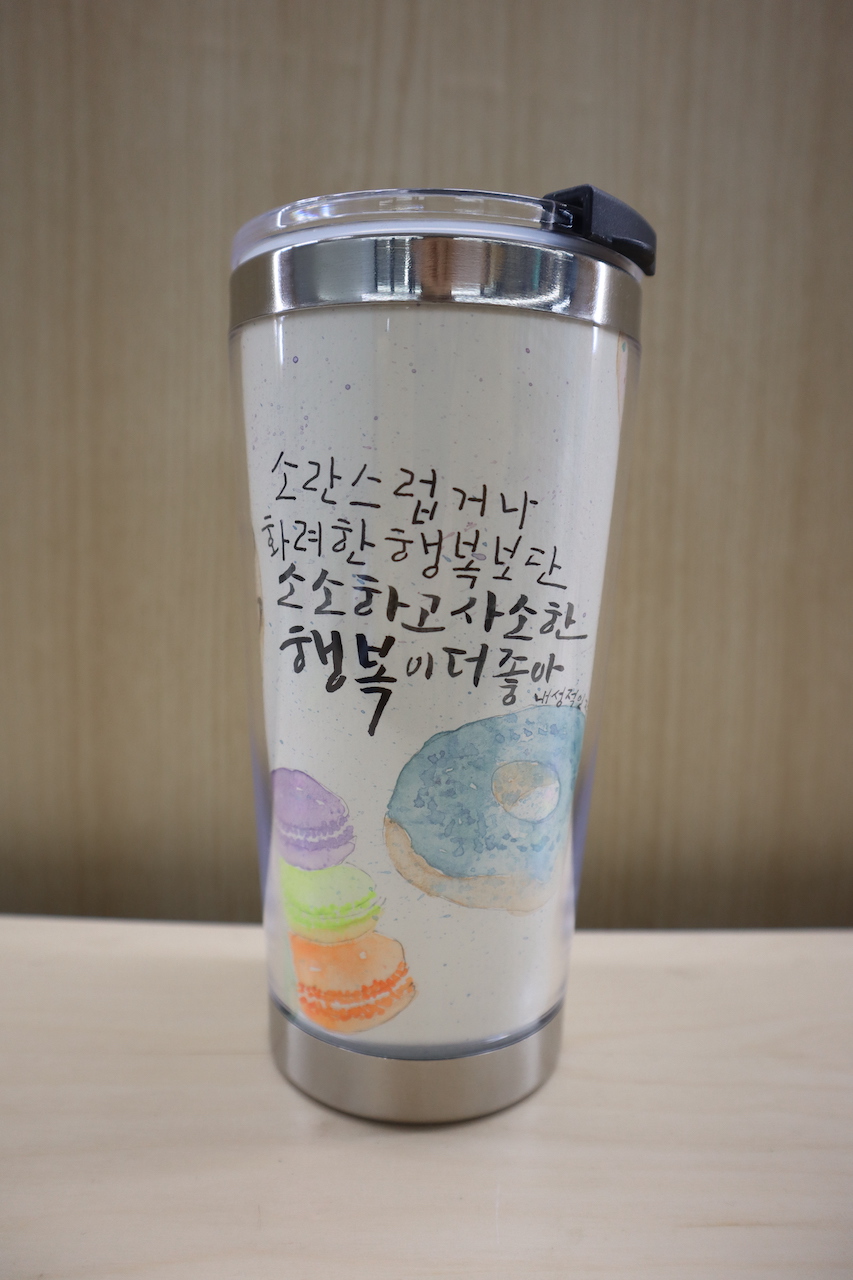 소란스럽거나
화려한 행복보단
소소하고 사소한
행복이 더 좋아